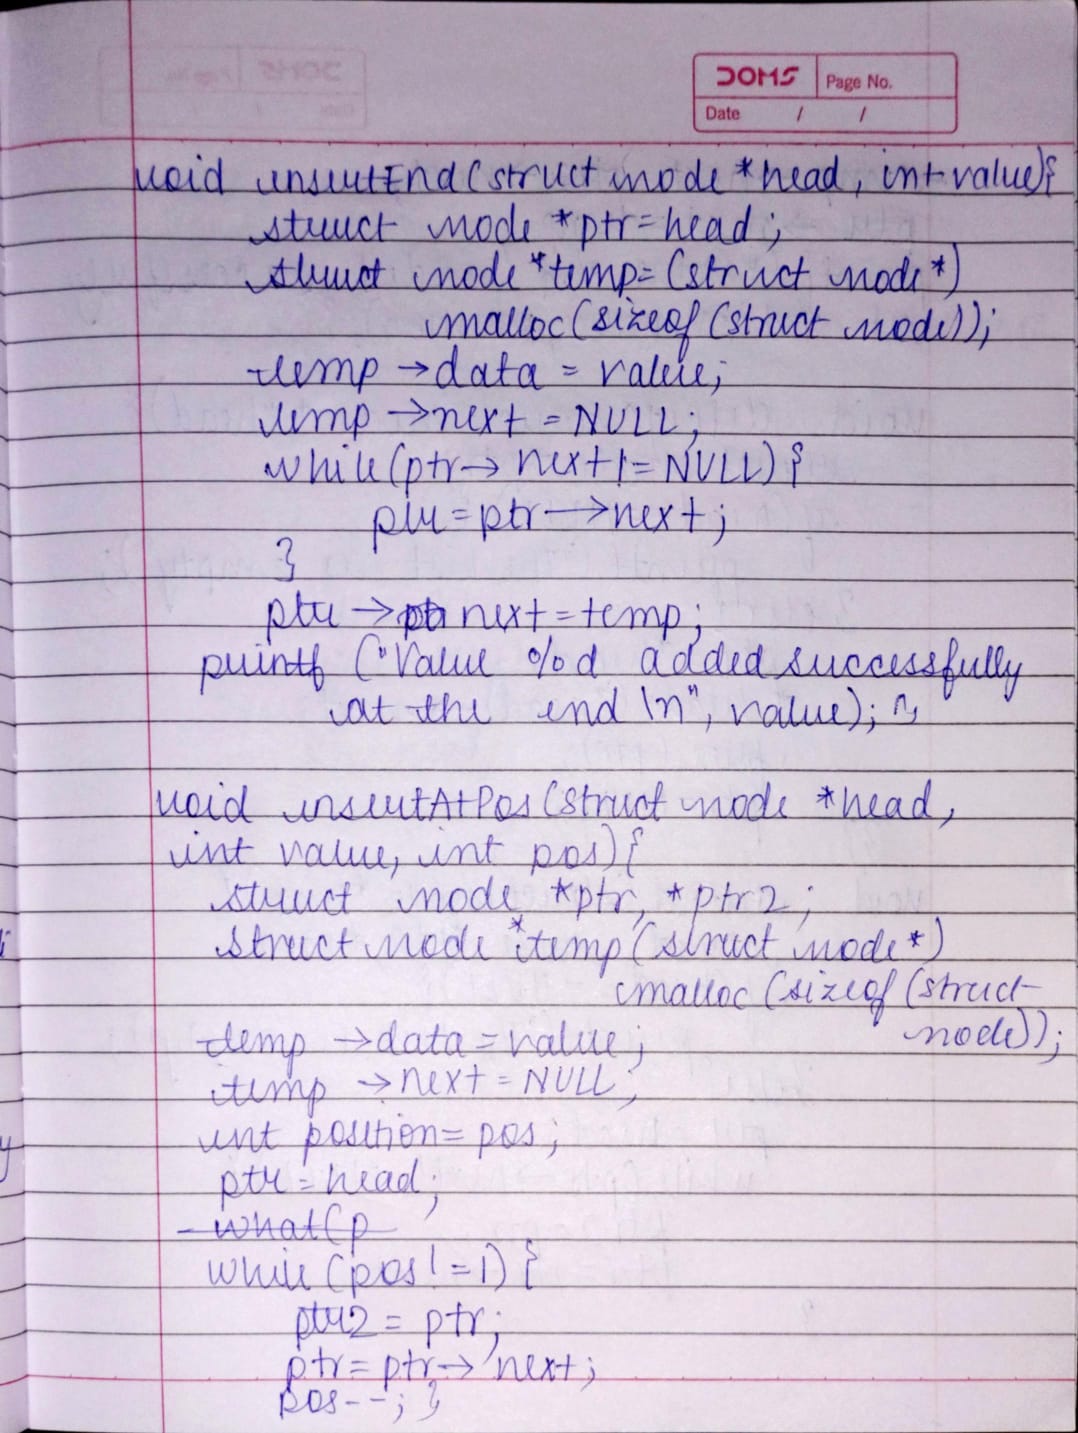 DOMS Page No.
Date / /
void insertEnd(struct node *head, int value){
struct node *ptr=head;
struct node *temp=(struct node*)
malloc(sizeof(struct node));
temp→data = value;
temp→next = NULL;
while(ptr→next!=NULL){
ptr=ptr→next;
}
ptr→next=temp;
printf ("Value %d added successfully
at the end \n", value); }
void insertAtPos(struct node *head,
int value, int pos){
struct node *ptr, *ptr2;
struct node *temp(struct node*)
malloc(sizeof(struct
node));
temp→data=value;
temp→next=NULL;
int position=pos;
ptr=head;
what(p
while(pos!=1){
ptr2=ptr;
ptr=ptr→next;
pos--; }